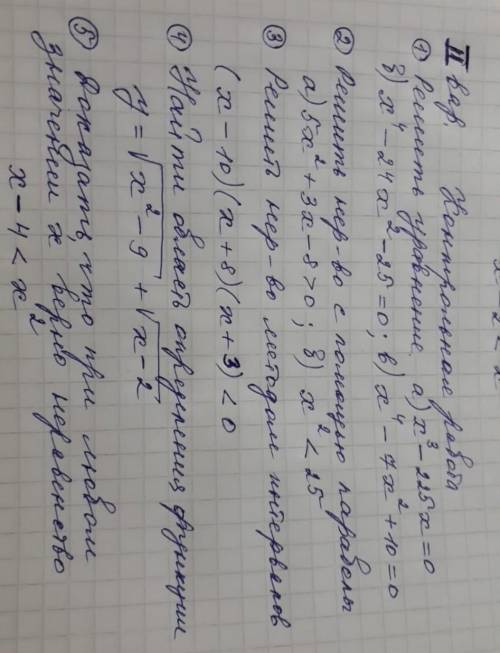 x - 2 < x
II вар. Контрольная работа
① Решить уравнение а) x³ - 225x = 0
б) x⁴ - 24x² - 25 = 0; в) x⁴ - 7x² + 10 = 0
② Решить нер-во с помощью параболы
а) 5x² + 3x - 8 > 0; б) x² < 25
③ Решить нер-во методом интервалов
(x - 10)(x + 8)(x + 3) < 0
④ Найти область определения функции
y = √x² - 9 + √x - 2
⑤ Доказать, что при любом
значении x верно неравенство
x - 4 < x²